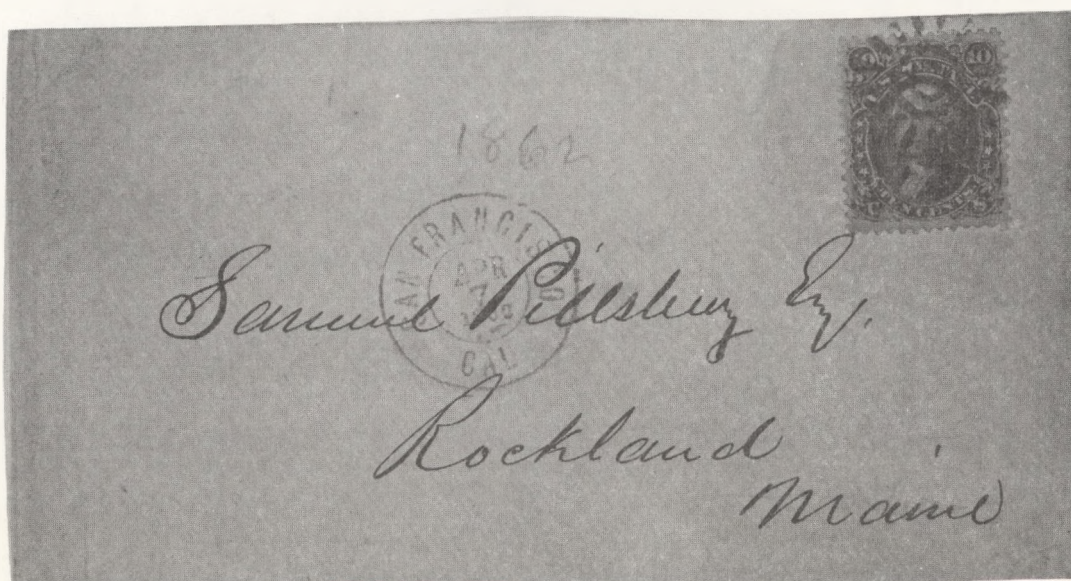 1862
SAN FRANCISCO
APR
7
1862
CAL
Samuel Pillsbury Esq.
Rockland
Maine
10
TEN CENTS